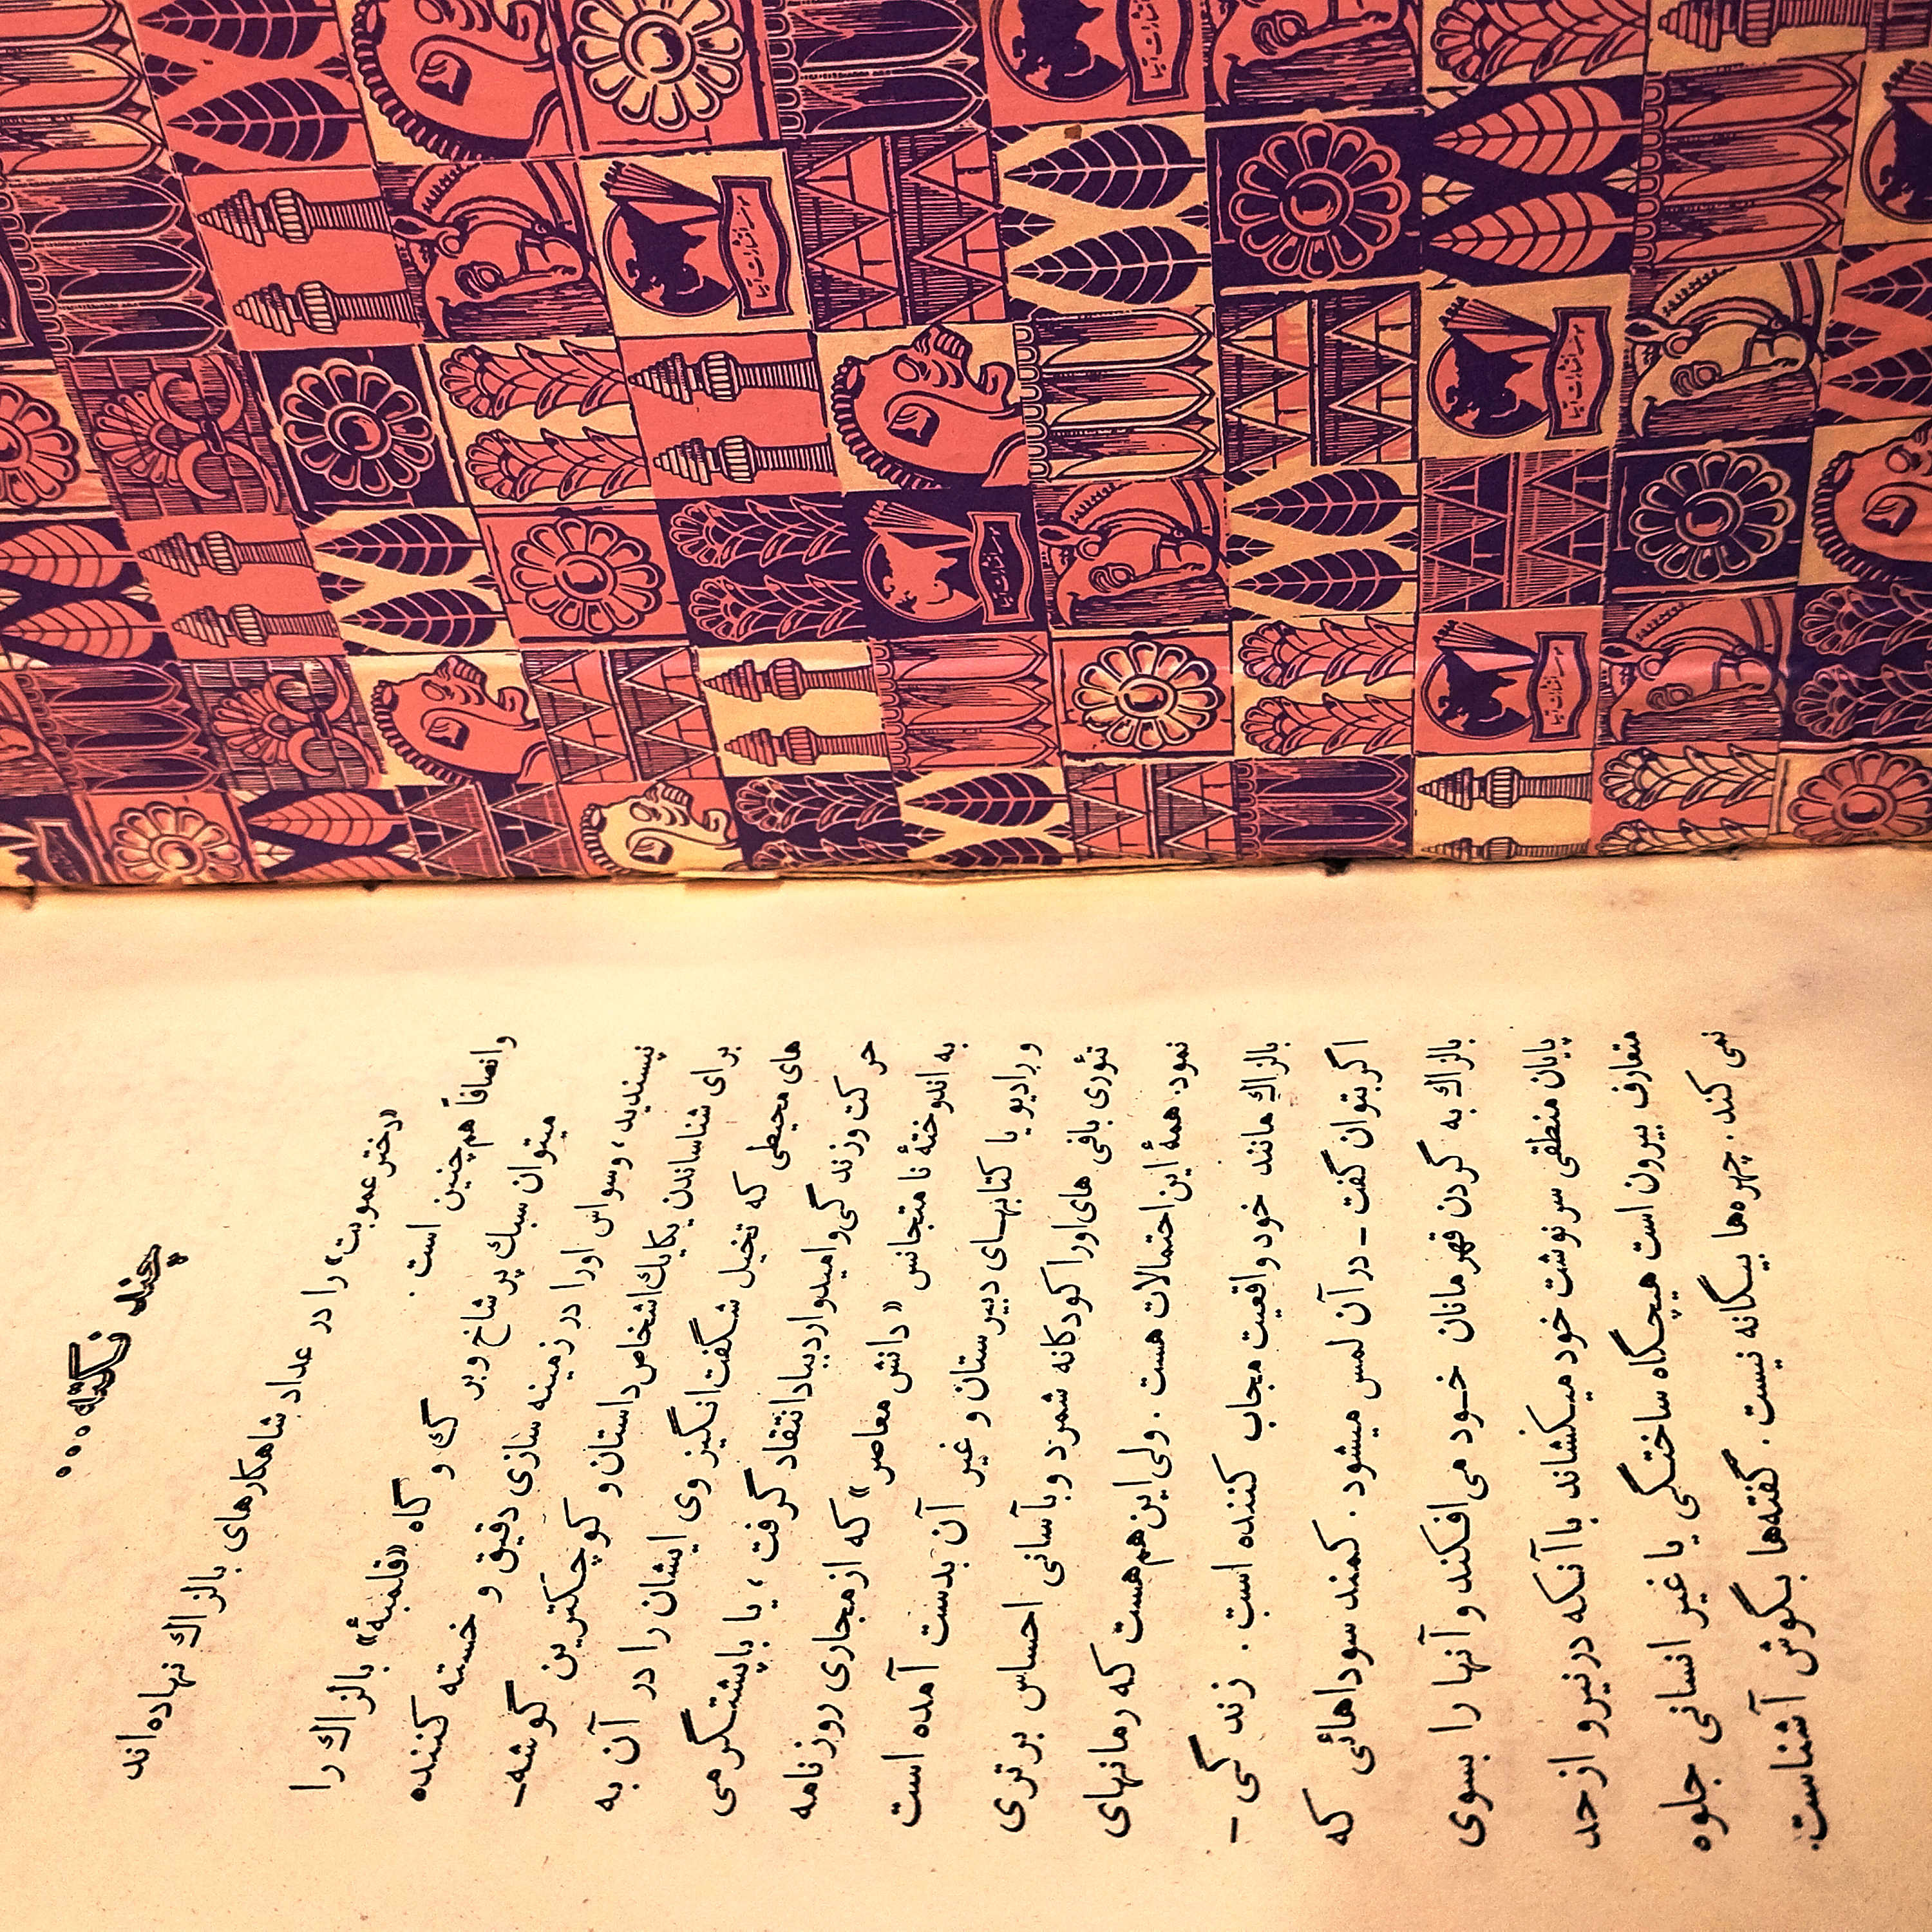 چند نکته...
«دختر عمو بت» را در عداد شاهکارهای بالزاك نهاده‌اند
وانصافاً هم چنین است .
میتوان سبك پر شاخ و بر گ و گاه «قلمبهٔ» بالزاك را
نپسندید، وسواس اورا در زمینه سازی دقیق و خسته کننده
برای شناساندن یکایك اشخاص داستان و کوچکترین گوشه-
های محیطی که تخیل شگفت انگیز وی ایشان را در آن به
حر کت وزند گی وامیدارد بباد انتقاد گرفت ، یا باپشتگرمی
به اندوختهٔ نا متجانس «دانش معاصر» که از مجاری روزنامه
و رادیو یا کتابهای دبیرستان و غیر آن بدست آمده است
تئوری بافی های اورا کودکانه شمرد و بآسانی احساس برتری
نمود. همهٔ این احتمالات هست . ولی این هم هست که رمانهای
بالزاك مانند خود واقعیت مجاب کننده است . زند گی -
اگر بتوان گفت - در آن لمس میشود . کمند سوداهائی که
بالزاك به گردن قهرمانان خود می افکند و آنها را بسوی
پایان منطقی سرنوشت خود میکشاند باآنکه در نیرو از حد
متعارف بیرون است هیچگاه ساختگی یا غیر انسانی جلوه
نمی کند. چهره‌ها بیگانه نیست . گفته‌ها بگوش آشناست.